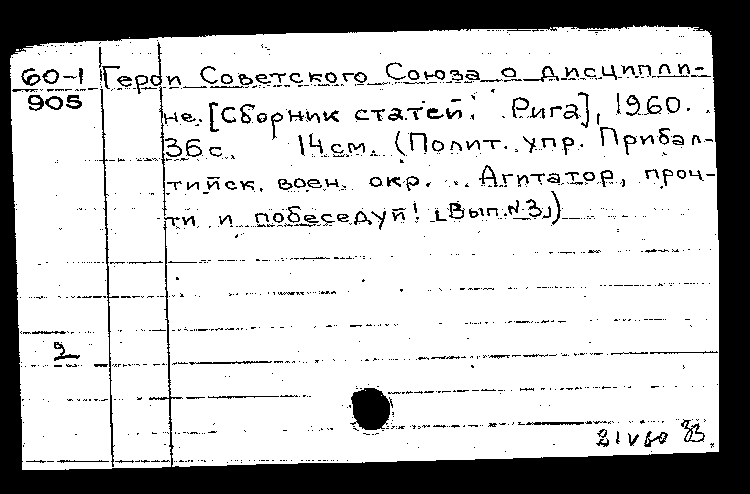 60-1 Герои Советского Союза о дисципли-
905
не. [Сборник статей. Рига], 1960.
36 с. 14 см. (Полит. упр. Прибал-
тийск. воен. окр. .. Агитатор, проч-
ти и побеседуй! [Вып. №3])
2